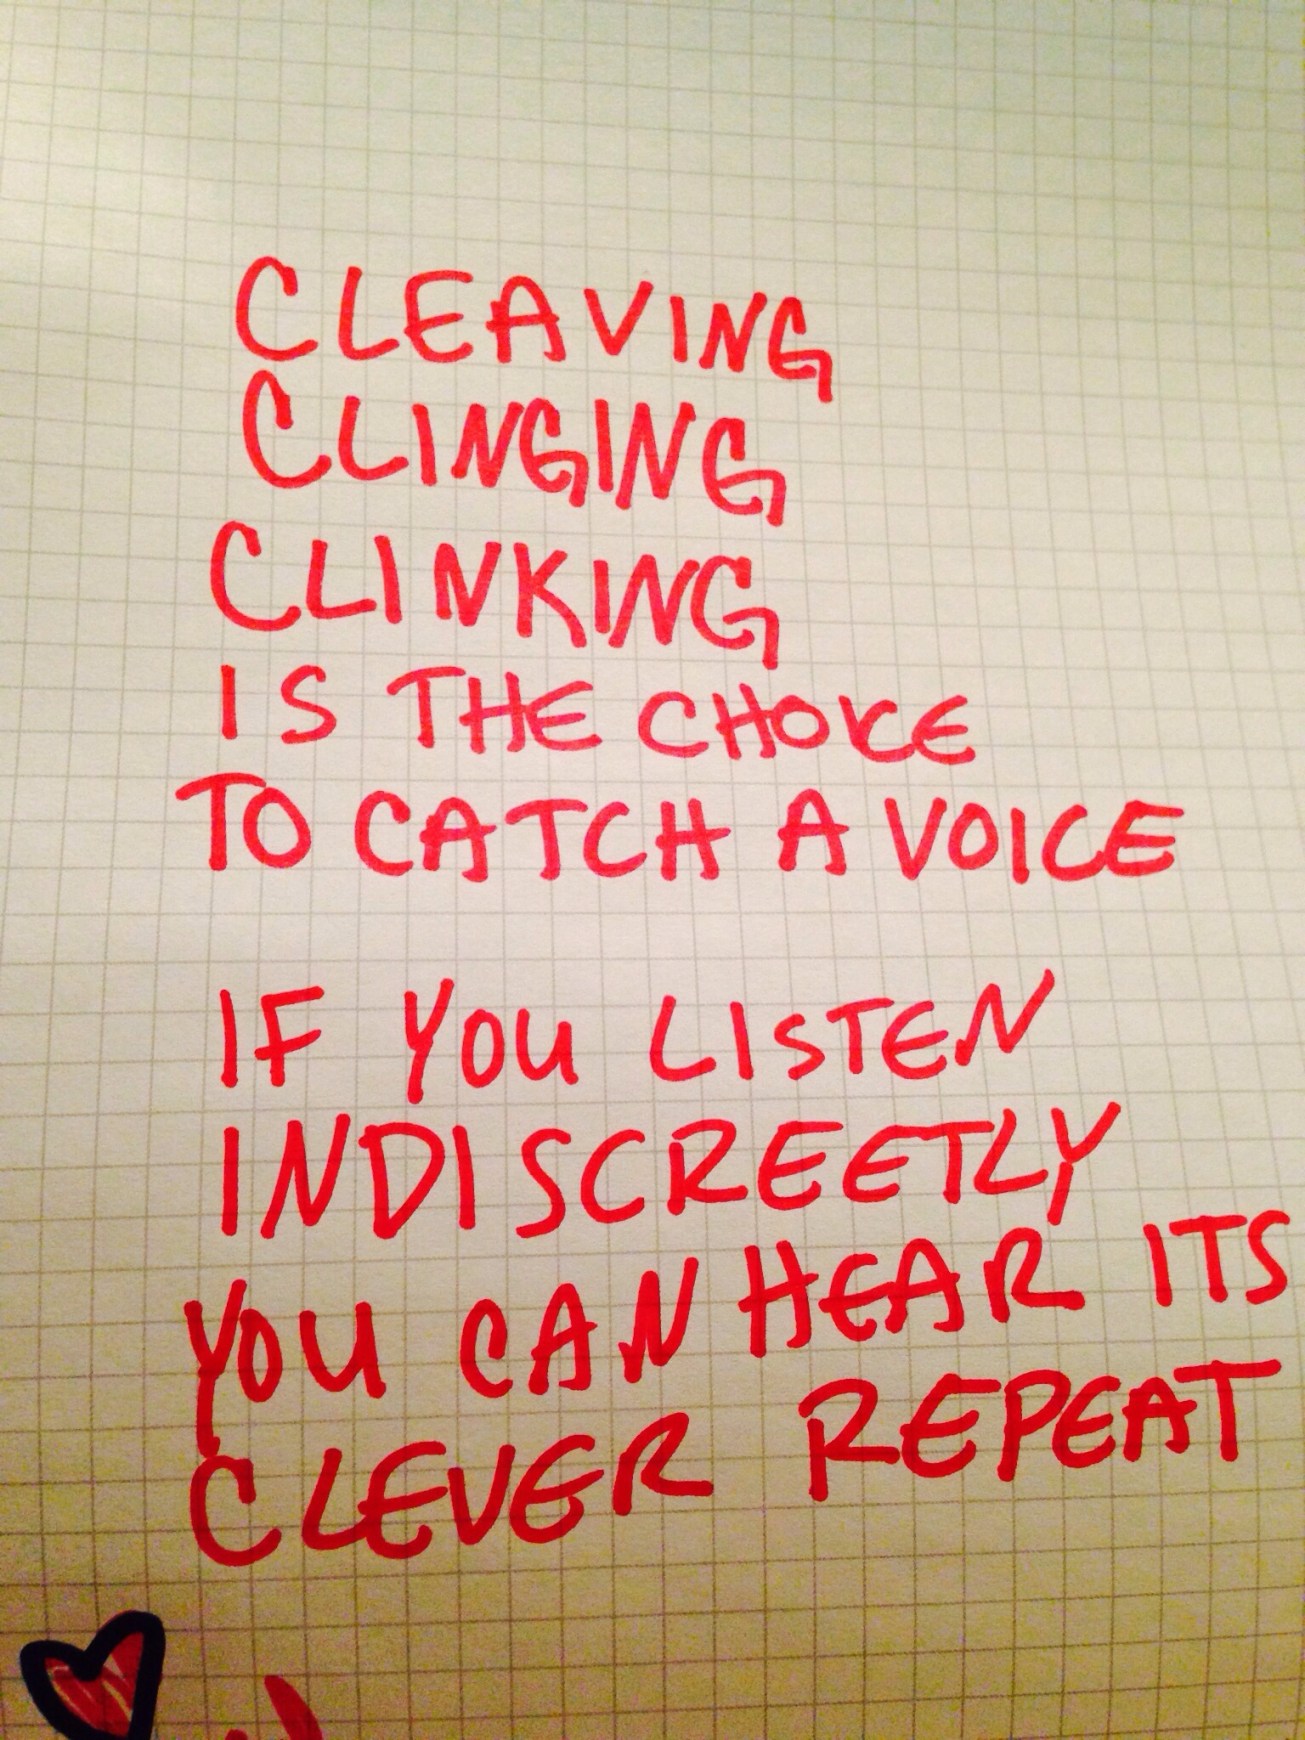 CLEAVING
CLINGING
CLINKING
IS THE CHOICE
TO CATCH A VOICE
IF YOU LISTEN
INDISCREETLY
YOU CAN HEAR ITS
CLEVER REPEAT